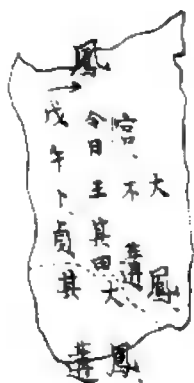 鳳
→
戊午卜貞
今日王其田
宮、不遘
大鳳
其遘
大鳳